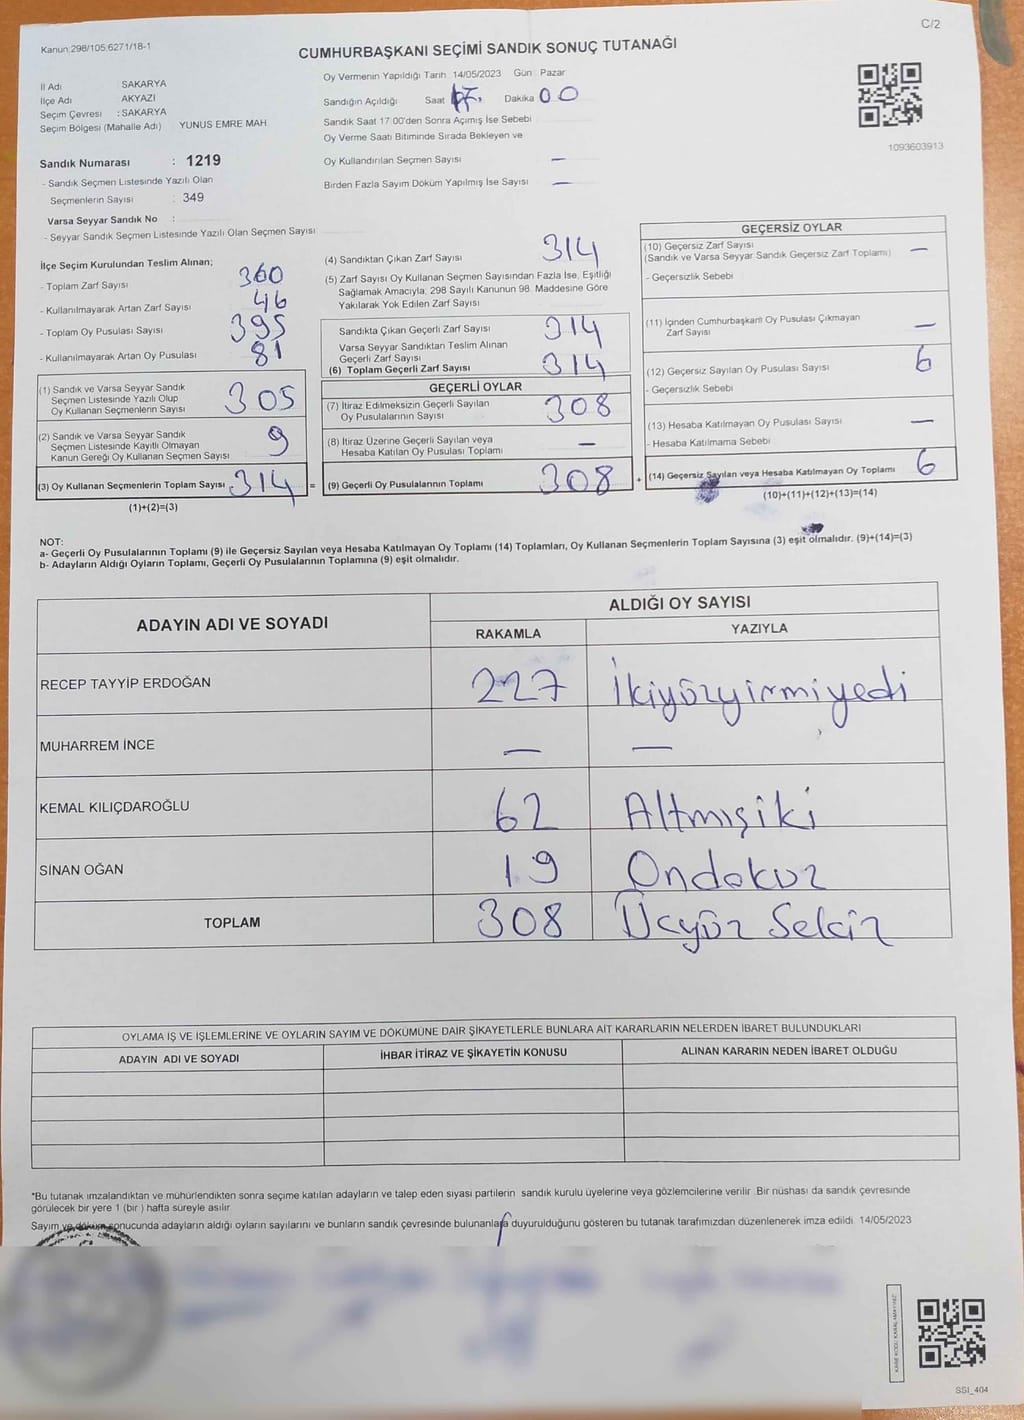 C/2
Kanun 298/105 6271/18-1
CUMHURBAŞKANI SEÇİMİ SANDIK SONUÇ TUTANAĞI
İl Adı : SAKARYA
İlçe Adı AKYAZI
Seçim Çevresi : SAKARYA
Seçim Bölgesi (Mahalle Adı) YUNUS EMRE MAH.
Oy Vermenin Yapıldığı Tarih 14/05/2023 Gün Pazar
Sandığın Açıldığı Saat 17. Dakika 00
Sandık Saat 17 00'den Sonra Açımış İse Sebebi
Oy Verme Saati Bitiminde Sırada Bekleyen ve
Oy Kullandırılan Seçmen Sayısı —
Birden Fazla Sayım Döküm Yapılmış İse Sayısı —
1093603913
Sandık Numarası : 1219
- Sandık Seçmen Listesinde Yazılı Olan
Seçmenlerin Sayısı : 349
Varsa Seyyar Sandık No :
- Seyyar Sandık Seçmen Listesinde Yazılı Olan Seçmen Sayısı
İlçe Seçim Kurulundan Teslim Alınan;
- Toplam Zarf Sayısı 360
- Kullanılmayarak Artan Zarf Sayısı 46
- Toplam Oy Pusulası Sayısı 395
- Kullanılmayarak Artan Oy Pusulası 81
(1) Sandık ve Varsa Seyyar Sandık
Seçmen Listesinde Yazılı Olup
Oy Kullanan Seçmenlerin Sayısı 305
(2) Sandık ve Varsa Seyyar Sandık
Seçmen Listesinde Kayıtlı Olmayan
Kanun Gereği Oy Kullanan Seçmen Sayısı 9
(3) Oy Kullanan Seçmenlerin Toplam Sayısı 314 =
(1)+(2)=(3)
(4) Sandıktan Çıkan Zarf Sayısı 314
(5) Zarf Sayısı Oy Kullanan Seçmen Sayısından Fazla İse, Eşitliği
Sağlamak Amacıyla, 298 Sayılı Kanunun 98. Maddesine Göre
Yakılarak Yok Edilen Zarf Sayısı
Sandıkta Çıkan Geçerli Zarf Sayısı 314
Varsa Seyyar Sandıktan Teslim Alınan
Geçerli Zarf Sayısı
(6) Toplam Geçerli Zarf Sayısı 314
GEÇERLİ OYLAR
(7) İtiraz Edilmeksizin Geçerli Sayılan
Oy Pusulalarının Sayısı 308
(8) İtiraz Üzerine Geçerli Sayılan veya
Hesaba Katılan Oy Pusulası Toplamı —
(9) Geçerli Oy Pusulalarının Toplamı 308 +
GEÇERSİZ OYLAR
(10) Geçersiz Zarf Sayısı
(Sandık ve Varsa Seyyar Sandık Geçersiz Zarf Toplamı) —
- Geçersizlik Sebebi
(11) İçinden Cumhurbaşkanı Oy Pusulası Çıkmayan
Zarf Sayısı —
(12) Geçersiz Sayılan Oy Pusulası Sayısı 6
- Geçersizlik Sebebi
(13) Hesaba Katılmayan Oy Pusulası Sayısı —
- Hesaba Katılmama Sebebi
(14) Geçersiz Sayılan veya Hesaba Katılmayan Oy Toplamı 6
(10)+(11)+(12)+(13)=(14)
NOT:
a- Geçerli Oy Pusulalarının Toplamı (9) ile Geçersiz Sayılan veya Hesaba Katılmayan Oy Toplamı (14) Toplamları, Oy Kullanan Seçmenlerin Toplam Sayısına (3) eşit olmalıdır. (9)+(14)=(3)
b- Adayların Aldığı Oyların Toplamı, Geçerli Oy Pusulalarının Toplamına (9) eşit olmalıdır.
ADAYIN ADI VE SOYADI ALDIĞI OY SAYISI
RAKAMLA YAZIYLA
RECEP TAYYİP ERDOĞAN 227 İkiyüzyirmiyedi
MUHARREM İNCE — —
KEMAL KILIÇDAROĞLU 62 Altmışiki
SİNAN OĞAN 19 Ondokuz
TOPLAM 308 Üçyüz Sekiz
OYLAMA İŞ VE İŞLEMLERİNE VE OYLARIN SAYIM VE DÖKÜMÜNE DAİR ŞİKAYETLERLE BUNLARA AİT KARARLARIN NELERDEN İBARET BULUNDUKLARI
ADAYIN ADI VE SOYADI İHBAR İTİRAZ VE ŞİKAYETİN KONUSU ALINAN KARARIN NEDEN İBARET OLDUĞU
*Bu tutanak imzalandıktan ve mühürlendikten sonra seçime katılan adayların ve talep eden siyasi partilerin sandık kurulu üyelerine veya gözlemcilerine verilir. Bir nüshası da sandık çevresinde
görülecek bir yere 1 (bir ) hafta süreyle asılır
Sayım ve döküm sonucunda adayların aldığı oyların sayılarını ve bunların sandık çevresinde bulunanlara duyurulduğunu gösteren bu tutanak tarafımızdan düzenlenerek imza edildi. 14/05/2023
KARE KODU KARALAMAYINIZ
SSI_404